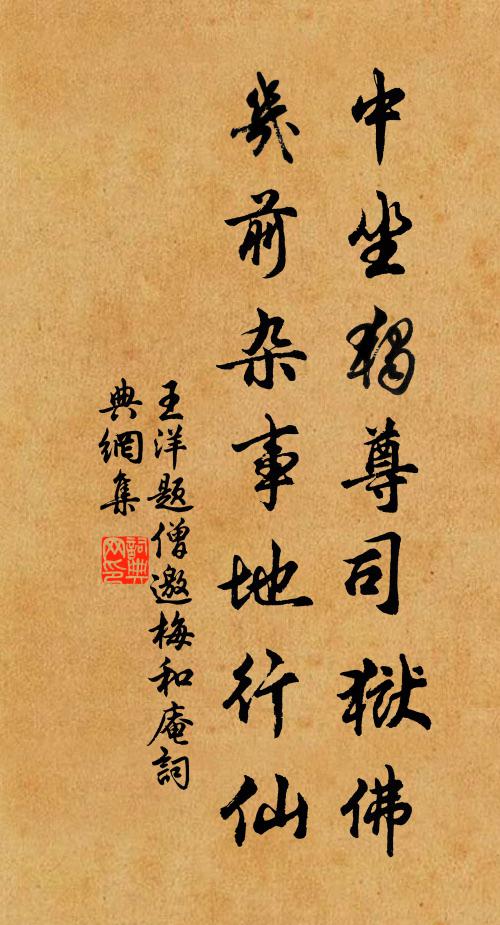 中坐独尊司獄佛
几前杂事地行仙
王洋题僧邀梅和庵詞
典網集
詞典
网印